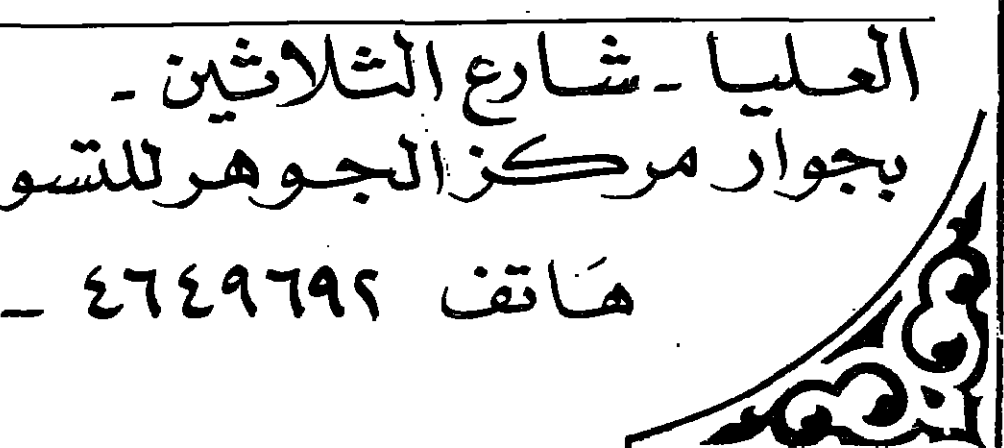 العليا - شارع الثلاثين -
بجوار مركز الجوهر للتسو
هَاتف ٤٦٤٩٦٩٢ -